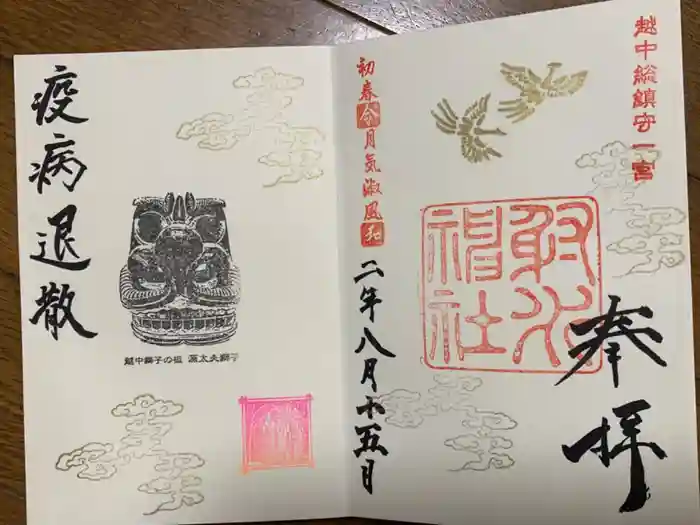 越中総鎮守一宮
奉拝
射水神社
初春令月気淑風和
二年八月十五日
越中獅子の祖 源太夫獅子
疫病退散